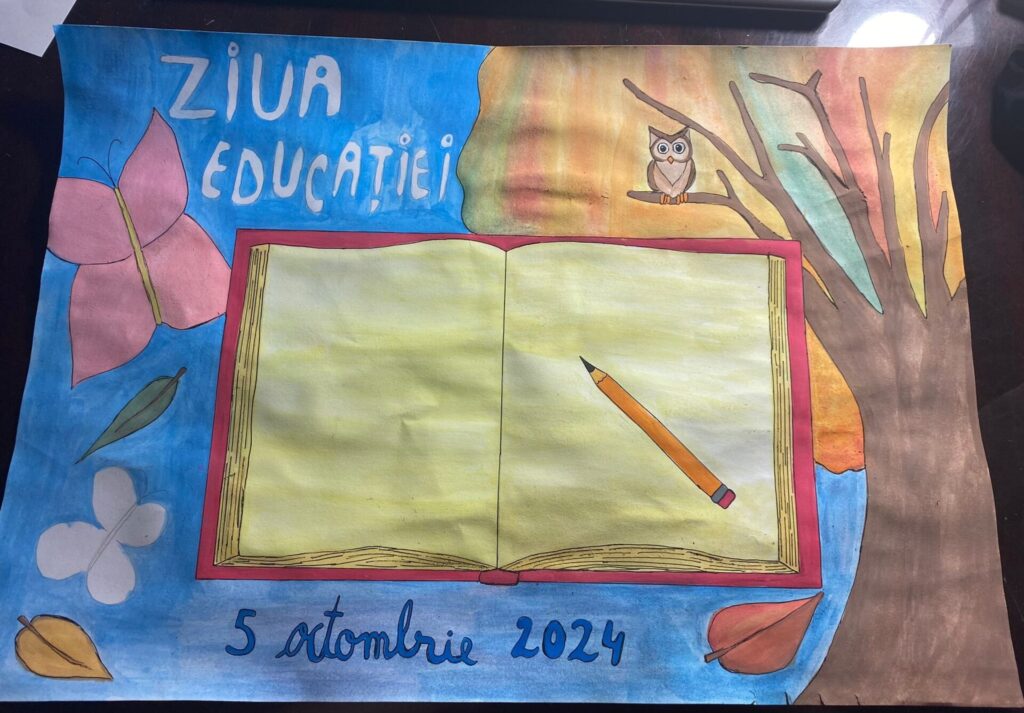 ZIUA
EDUCAȚIEI
5 octombrie 2024